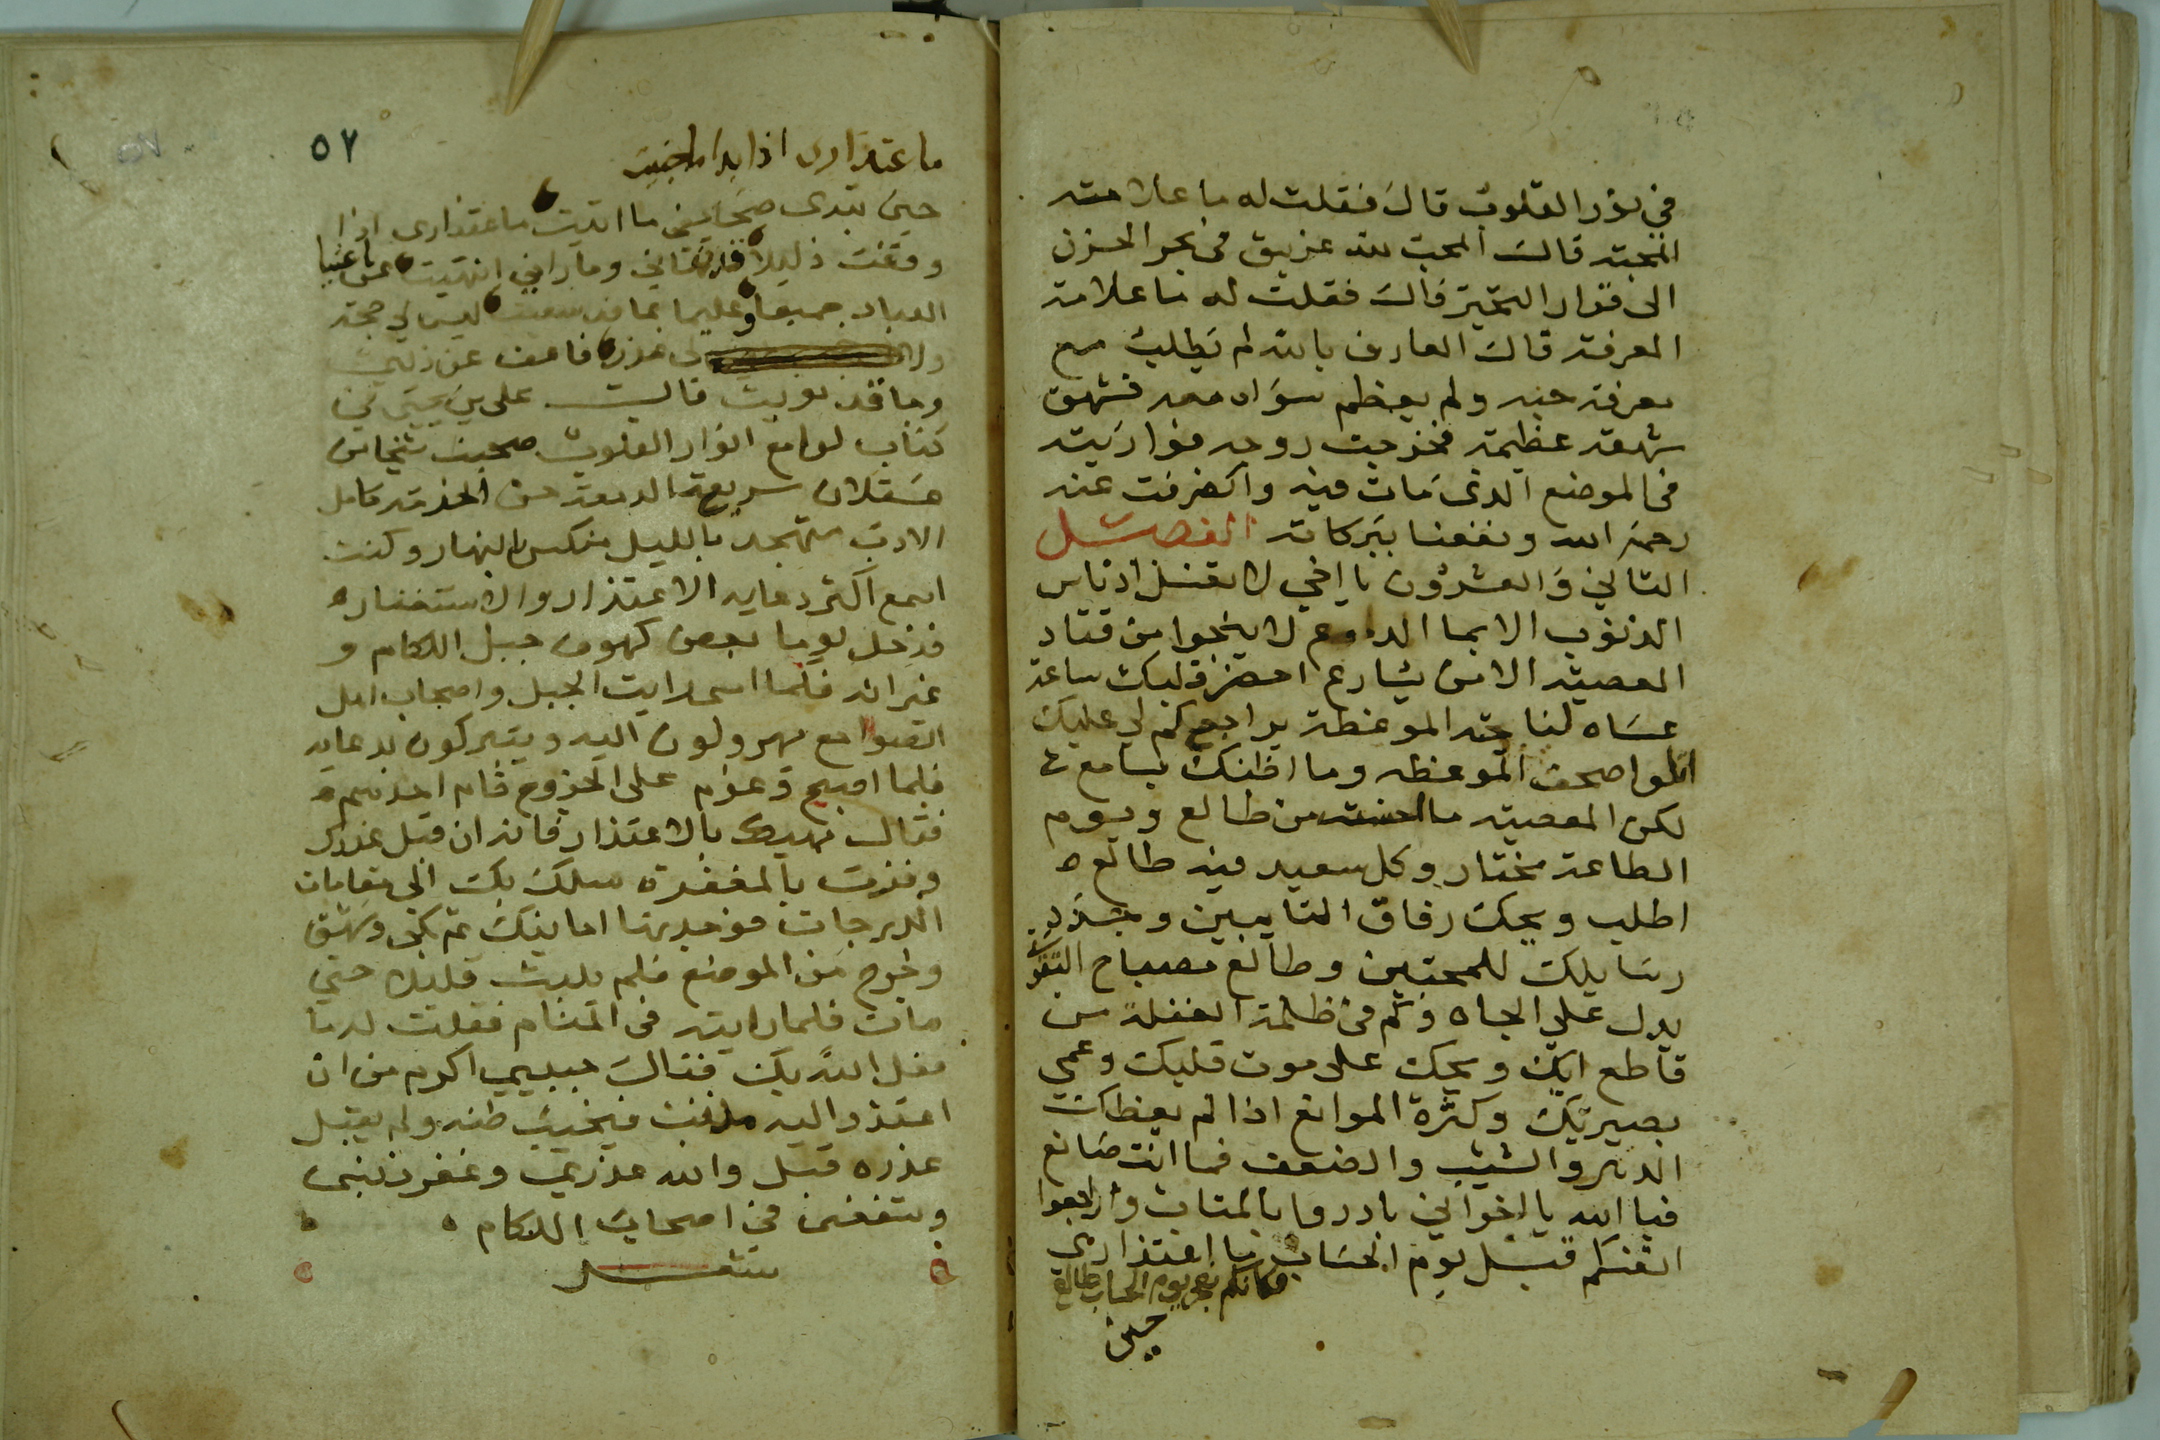 في نور القلوب قال فقلت له ما علامته
المحبة قالت المحب لله غريق في بحر الحزن
الى قرار التحير قال فقلت له ما علامة
المعرفة قال العارف بالله لم يطلب مع
معرفة حبه ولم يعظم سواه معه فشهق
شهقة عظيمة فخرجت روحه فواريته
في الموضع الذي مات فيه وانصرفت عنه
رحمة الله ونفعنا ببركاته الفصل
الثاني والعشرون يا اخي لا يغسل ادناس
الذنوب الا بما الدموع لا ينجوا من قتاد
المعصية الا من يسارع احضر قلبك ساعة
عساه لنا يحة الموعظة يراجع كم لي عليك
اتلوا صحف الموعظه وما اظنك بسامع
لكن المعصية من طالع ويوم
الطاعة مختار وكل سعيد فيه طالع ه
اطلب ويحك رفاق التايبين وجدد
رسايلك للمحبين وطالع مصباح التقوى
يدل على الجاه وكم في ظلمة الغفلة من
قاطع ابك ويحك على موت قلبك وعمى
بصيرتك وكثرة الموانع اذا لم يعظك
الدهر والشيب والضعف فما انت صانع
فيا الله يا اخواني بادروا بالمتاب وراجعوا
انفسكم قبل يوم الحساب ما اعتذاري
فكانكم بيوم الحساب طالع
حين
٥٧
ما عتذاري اذا بدا ما جنيت
حين تبدى صحايفي ما اتيت ما عتذاري اذا
وقفت ذليلا قد نهاني وما راني انتهيت يا غنيا عن
العباد جميعا وعليما بما قد سعيت ليس لي حجة
ولا لي عذر فاعف عن زلتي
وما قد نويت قالت على بن يحيى في
كتاب لوامع انوار القلوب صحبت شيخا من
عسقلان سريع الدمعة حسن الخدمة كامل
الادب متهجد بالليل متكيس بالنهار وكنت
اسمع اكثر دعايه الاعتذار والاستغفار ه
فدخل يوما بعض كهوف جبل اللكام و
غيرانه فلما امسى رايت الجبل واصحاب اهل
الصوامع يهرولون اليه ويتبركون بدعايه
فلما اصبح وعزم على الخروج قام احدهم
فقال عليك بالاعتذار فانه ان قبل عذرك
وفزت بالمغفرة سلك بك الى مقامات
الدرجات فوجدتها امانيك ثم بكى وشهق
وخرج من الموضع فلم يلبث قليلا حتى
مات فلما رايته في المنام فقلت له ما
فعل الله بك فقال حبيبي اكرم من ان
اعتذر اليه مذنب فيخيب ظنه ولم يقبل
عذره قبل والله عذري وغفر ذنبي
وشفعني في اصحاب اللكام ه
شعر